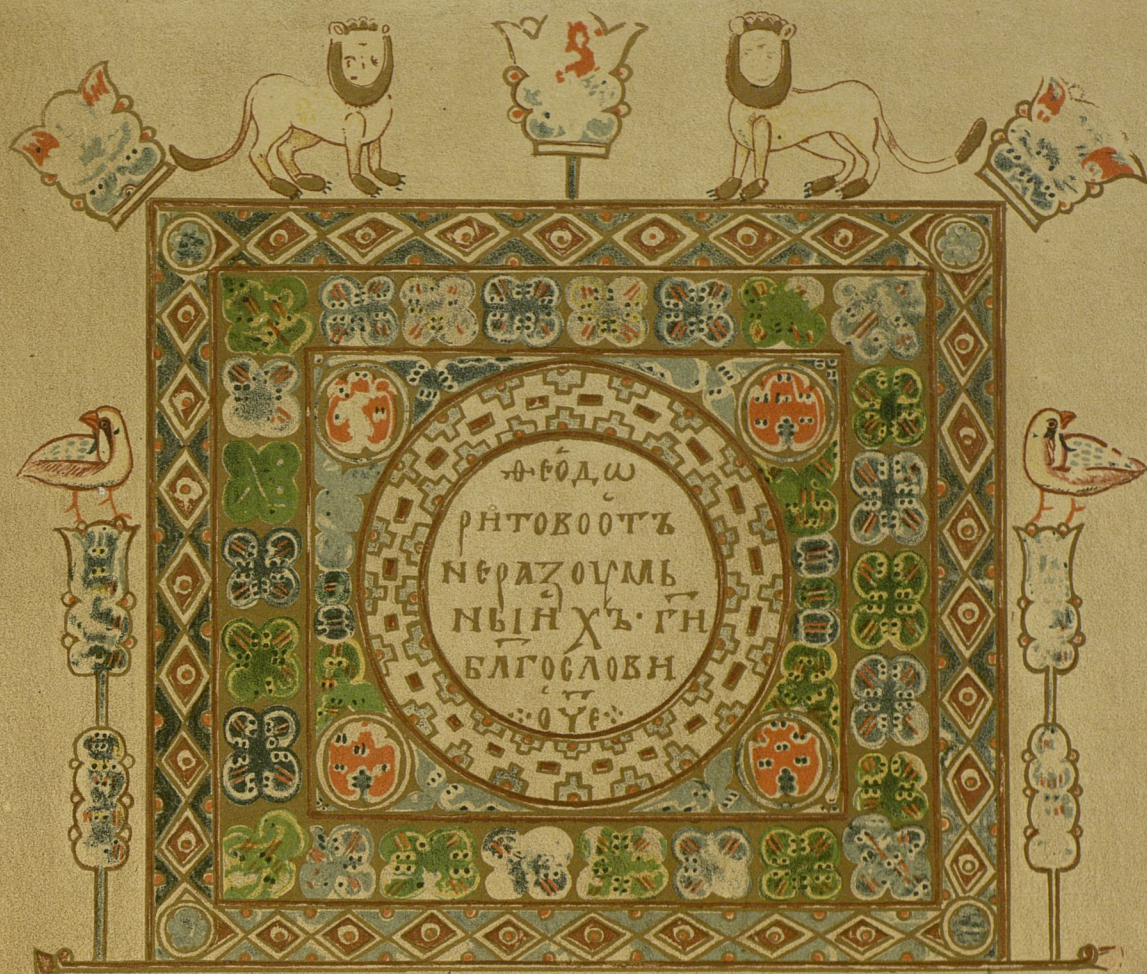 ѳеодѡ
ритово отъ
неразоумь
ныихъ· г҃и
бл҃гослови
ѻч҃е